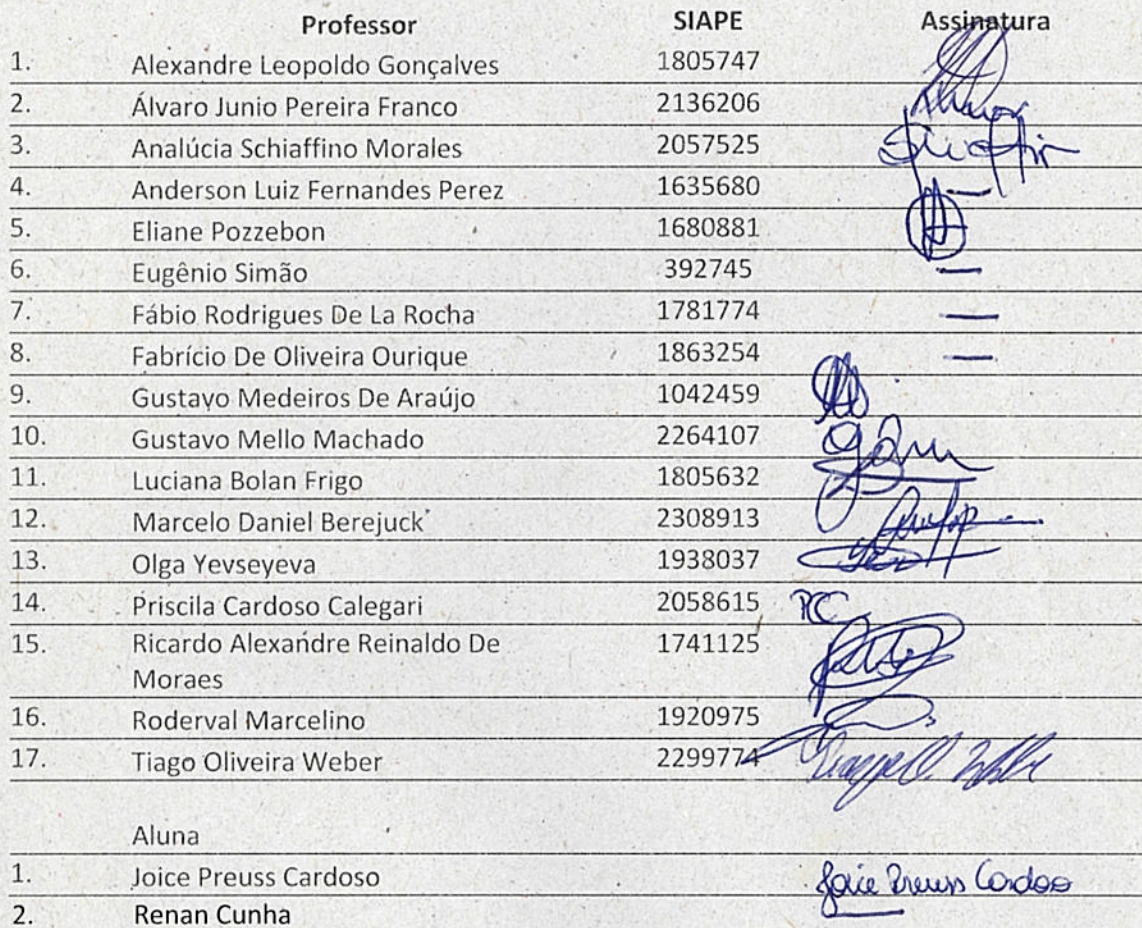 Professor SIAPE Assinatura
1. Alexandre Leopoldo Gonçalves 1805747
2. Álvaro Junio Pereira Franco 2136206
3. Analúcia Schiaffino Morales 2057525
4. Anderson Luiz Fernandes Perez 1635680 —
5. Eliane Pozzebon 1680881
6. Eugênio Simão 392745 —
7. Fábio Rodrigues De La Rocha 1781774 —
8. Fabrício De Oliveira Ourique 1863254 —
9. Gustavo Medeiros De Araújo 1042459
10. Gustavo Mello Machado 2264107
11. Luciana Bolan Frigo 1805632
12. Marcelo Daniel Berejuck 2308913
13. Olga Yevseyeva 1938037
14. Priscila Cardoso Calegari 2058615 PCC
15. Ricardo Alexandre Reinaldo De 1741125
Moraes
16. Roderval Marcelino 1920975
17. Tiago Oliveira Weber 2299774
Aluna
1. Joice Preuss Cardoso Joice Preuss Cardoso
2. Renan Cunha —